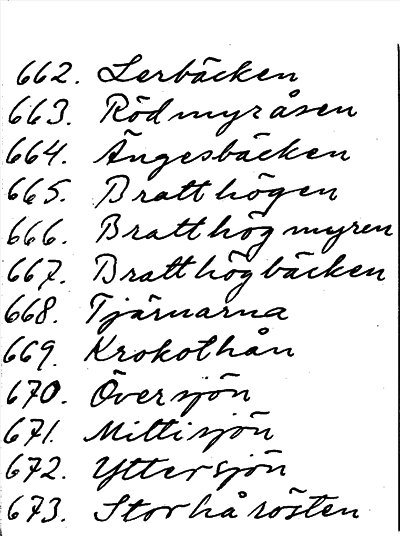 662. Lerbäcken
663. Rödmyråsen
664. Ängesbäcken
665. Bratthögen
666. Bratthögmyren
667. Bratthögbäcken
668. Tjärnarna
669. Krokolhån
670. Översjön
671. Mittisjön
672. Yttersjön
673. Storhårösten